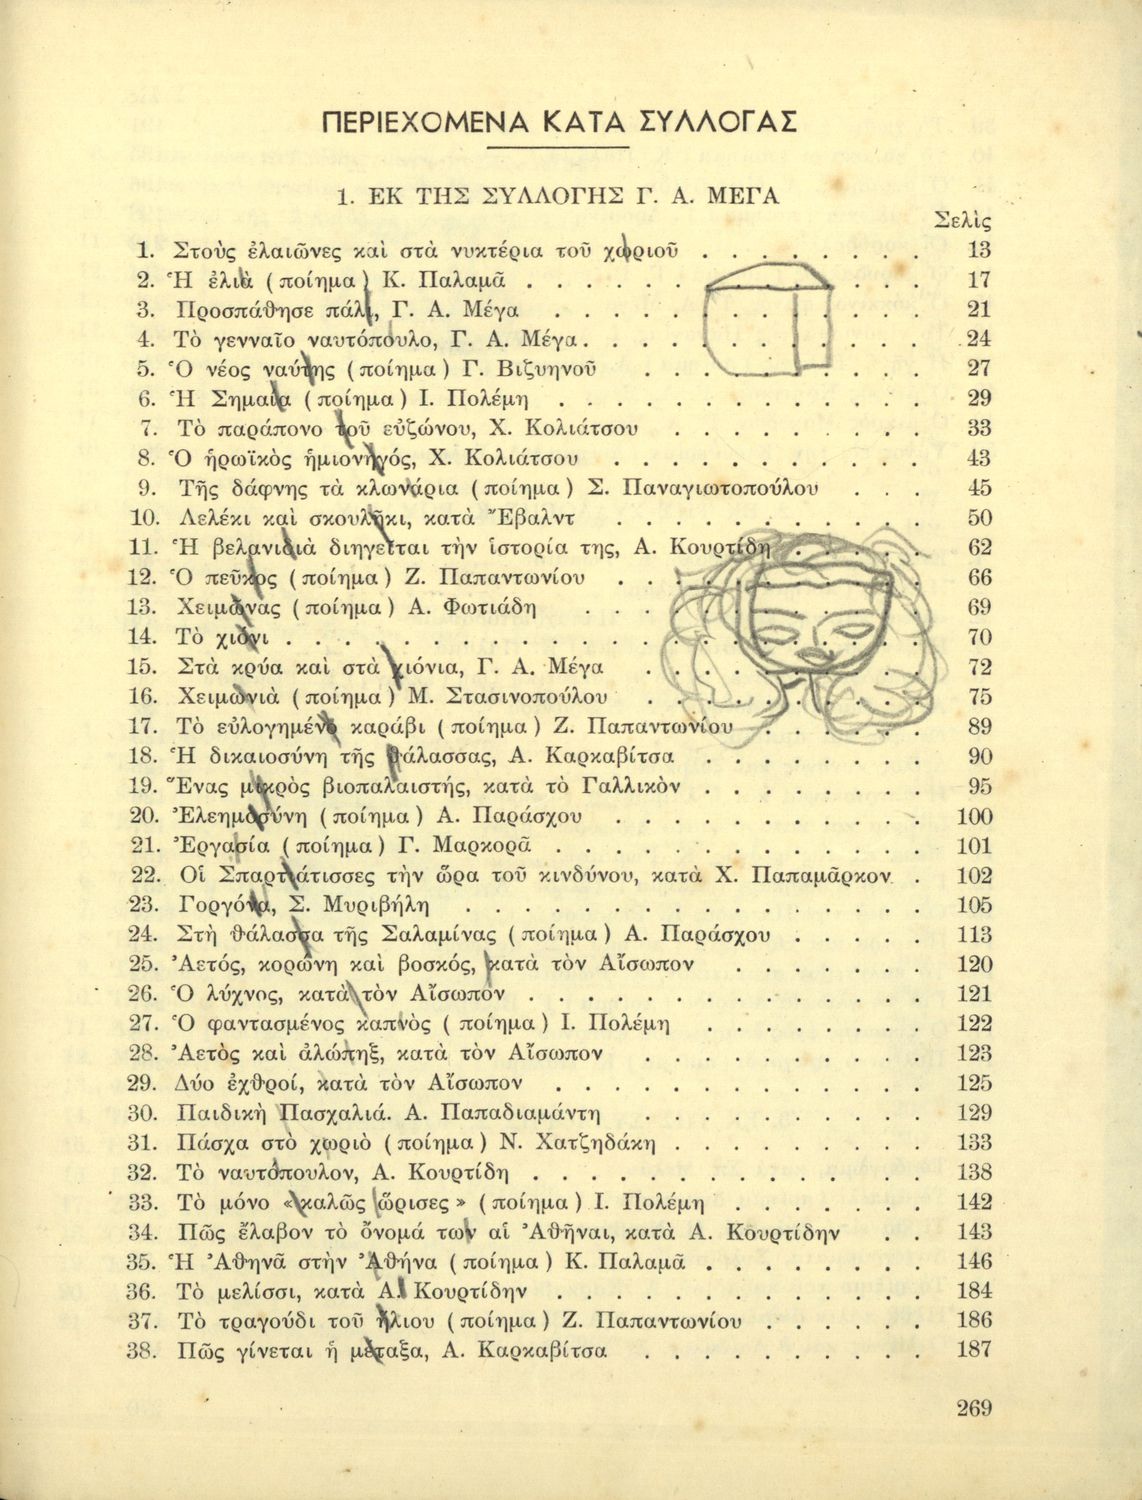 ΠΕΡΙΕΧΟΜΕΝΑ ΚΑΤΑ ΣΥΛΛΟΓΑΣ
1. ΕΚ ΤΗΣ ΣΥΛΛΟΓΗΣ Γ. Α. ΜΕΓΑ
Σελὶς
1. Στοὺς ἐλαιῶνες καὶ στὰ νυκτέρια τοῦ χωριοῦ . . . . . . . . 13
2. Ἡ ἐλιὰ (ποίημα) Κ. Παλαμᾶ . . . . . . . . . . . . . . 17
3. Προσπάθησε πάλι, Γ. Α. Μέγα . . . . . . . . . . . . . 21
4. Τὸ γενναῖο ναυτόπουλο, Γ. Α. Μέγα . . . . . . . . . . . . 24
5. Ὁ νέος ναύτης (ποίημα) Γ. Βιζυηνοῦ . . . . . . . . . . 27
6. Ἡ Σημαία (ποίημα) Ι. Πολέμη . . . . . . . . . . . . . 29
7. Τὸ παράπονο τοῦ εὐζώνου, Χ. Κολιάτσου . . . . . . . . . 33
8. Ὁ ἡρωϊκὸς ἡμιονηγός, Χ. Κολιάτσου . . . . . . . . . . . 43
9. Τῆς δάφνης τὰ κλωνάρια (ποίημα) Σ. Παναγιωτοπούλου . . . 45
10. Λελέκι καὶ σκουλῆκι, κατὰ Ἔβαλντ . . . . . . . . . . . 50
11. Ἡ βελανιδιὰ διηγεῖται τὴν ἱστορία της, Α. Κουρτίδη . . . . . 62
12. Ὁ πεῦκος (ποίημα) Ζ. Παπαντωνίου . . . . . . . . . . . 66
13. Χειμώνας (ποίημα) Α. Φωτιάδη . . . . . . . . . . . . 69
14. Τὸ χιόνι . . . . . . . . . . . . . . . . . . . . . . 70
15. Στὰ κρύα καὶ στὰ χιόνια, Γ. Α. Μέγα . . . . . . . . . . 72
16. Χειμωνιὰ (ποίημα) Μ. Στασινοπούλου . . . . . . . . . . 75
17. Τὸ εὐλογημένο καράβι (ποίημα) Ζ. Παπαντωνίου . . . . . . 89
18. Ἡ δικαιοσύνη τῆς θάλασσας, Α. Καρκαβίτσα . . . . . . . . 90
19. Ἕνας μικρὸς βιοπαλαιστής, κατὰ τὸ Γαλλικὸν . . . . . . . . 95
20. Ἐλεημοσύνη (ποίημα) Α. Παράσχου . . . . . . . . . . . 100
21. Ἐργασία (ποίημα) Γ. Μαρκορᾶ . . . . . . . . . . . . . 101
22. Οἱ Σπαρτιάτισσες τὴν ὥρα τοῦ κινδύνου, κατὰ Χ. Παπαμᾶρκον . . 102
23. Γοργόνα, Σ. Μυριβήλη . . . . . . . . . . . . . . . . 105
24. Στὴ θάλασσα τῆς Σαλαμίνας (ποίημα) Α. Παράσχου . . . . . 113
25. Ἀετός, κορώνη καὶ βοσκός, κατὰ τὸν Αἴσωπον . . . . . . . 120
26. Ὁ λύχνος, κατὰ τὸν Αἴσωπον . . . . . . . . . . . . . . 121
27. Ὁ φαντασμένος καπνὸς (ποίημα) Ι. Πολέμη . . . . . . . . 122
28. Ἀετὸς καὶ ἀλώπηξ, κατὰ τὸν Αἴσωπον . . . . . . . . . . 123
29. Δύο ἐχθροί, κατὰ τὸν Αἴσωπον . . . . . . . . . . . . . 125
30. Παιδικὴ Πασχαλιά. Α. Παπαδιαμάντη . . . . . . . . . . 129
31. Πάσχα στὸ χωριὸ (ποίημα) Ν. Χατζηδάκη . . . . . . . . . 133
32. Τὸ ναυτόπουλον, Α. Κουρτίδη . . . . . . . . . . . . . 138
33. Τὸ μόνο «καλῶς ὥρισες» (ποίημα) Ι. Πολέμη . . . . . . . 142
34. Πῶς ἔλαβον τὸ ὄνομά των αἱ Ἀθῆναι, κατὰ Α. Κουρτίδην . . 143
35. Ἡ Ἀθηνᾶ στὴν Ἀθήνα (ποίημα) Κ. Παλαμᾶ . . . . . . . . 146
36. Τὸ μελίσσι, κατὰ Α. Κουρτίδην . . . . . . . . . . . . . 184
37. Τὸ τραγούδι τοῦ ἥλιου (ποίημα) Ζ. Παπαντωνίου . . . . . . 186
38. Πῶς γίνεται ἡ μέταξα, Α. Καρκαβίτσα . . . . . . . . . . 187
269